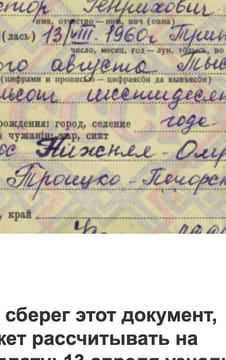 тор Генрихович
имя, отчество – ним, вич (овна)
(лась) 13/VIII. 1960 г Трин
число, месяц, год – лун, тӧлысь, во
ого августа Тыс
(цифрами и прописью – цифраясӧн да кывъясӧн)
шестидеся
рождения: город, селение года
чужанін: кар, сикт
Нижняя - Ому
Троицко - Печорск
, край
сберег этот документ,
жет рассчитывать на
13 апреля